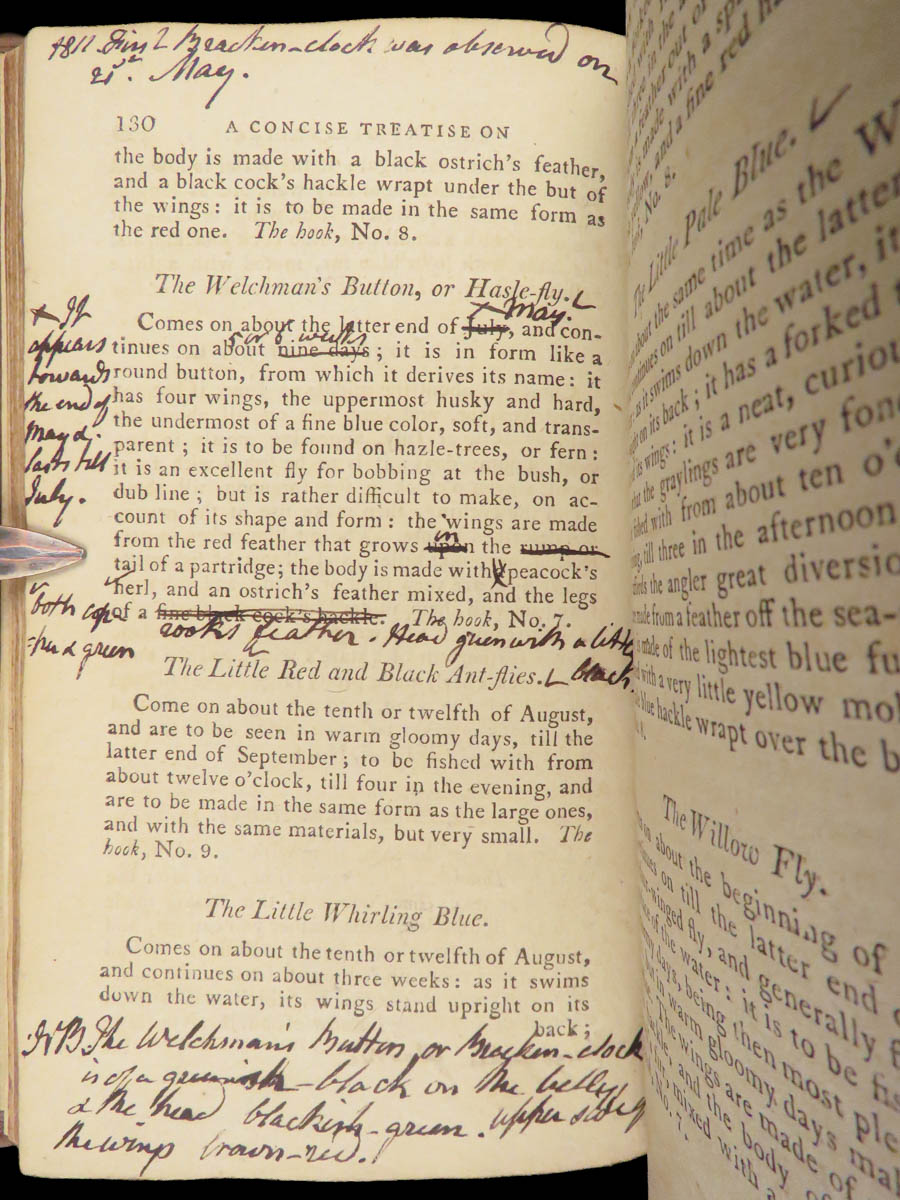 1811 First Bracken-clock was observed on
21st. May.
130 A CONCISE TREATISE ON
the body is made with a black ostrich's feather,
and a black cock's hackle wrapt under the but of
the wings: it is to be made in the same form as
the red one. The hook, No. 8.
The Welchman's Button, or Hasle-fly.
May.
Comes on about the latter end of July, and con-
5 or 6 weeks
tinues on about nine days; it is in form like a
round button, from which it derives its name: it
has four wings, the uppermost husky and hard,
the undermost of a fine blue color, soft, and trans-
parent; it is to be found on hazle-trees, or fern:
it is an excellent fly for bobbing at the bush, or
dub line; but is rather difficult to make, on ac-
count of its shape and form: the wings are made
in
from the red feather that grows upon the rump or
tail of a partridge; the body is made with peacock's
herl, and an ostrich's feather mixed, and the legs
of a fine black cock's hackle. The hook, No. 7.
rook's feather. Head green with a little
black.
+ It
appears
towards
the end of
May &
lasts till
July.
both cop-
-per & green
The Little Red and Black Ant-flies.
Come on about the tenth or twelfth of August,
and are to be seen in warm gloomy days, till the
latter end of September; to be fished with from
about twelve o'clock, till four in the evening, and
are to be made in the same form as the large ones,
and with the same materials, but very small. The
hook, No. 9.
The Little Whirling Blue.
Comes on about the tenth or twelfth of August,
and continues on about three weeks: as it swims
down the water, its wings stand upright on its
back;
NB The Welchman's Button or Bracken-clock
is of a greenish-black on the belly
& the head blackish-green. upper side of
the wings brown-red.
and a fine red
No. 8.
The Little Pale Blue.
about the same time as the
continues on till about the latter
as it swims down the water, it
on its back; it has a forked
its wings: it is a neat, curiou
that the graylings are very fon
fished with from about ten o'c
till three in the afternoon
affords the angler great diversio
made from a feather off the sea-
is made of the lightest blue fu
with a very little yellow mo
blue hackle wrapt over the b
The Willow Fly.
on about the beginning of
continues on till the latter end
four-winged fly, and generally f
of the water: it is to be fis
days, being then most ple
in warm gloomy days ma
The wings are made of
and the body
mixed with a
No. 7.